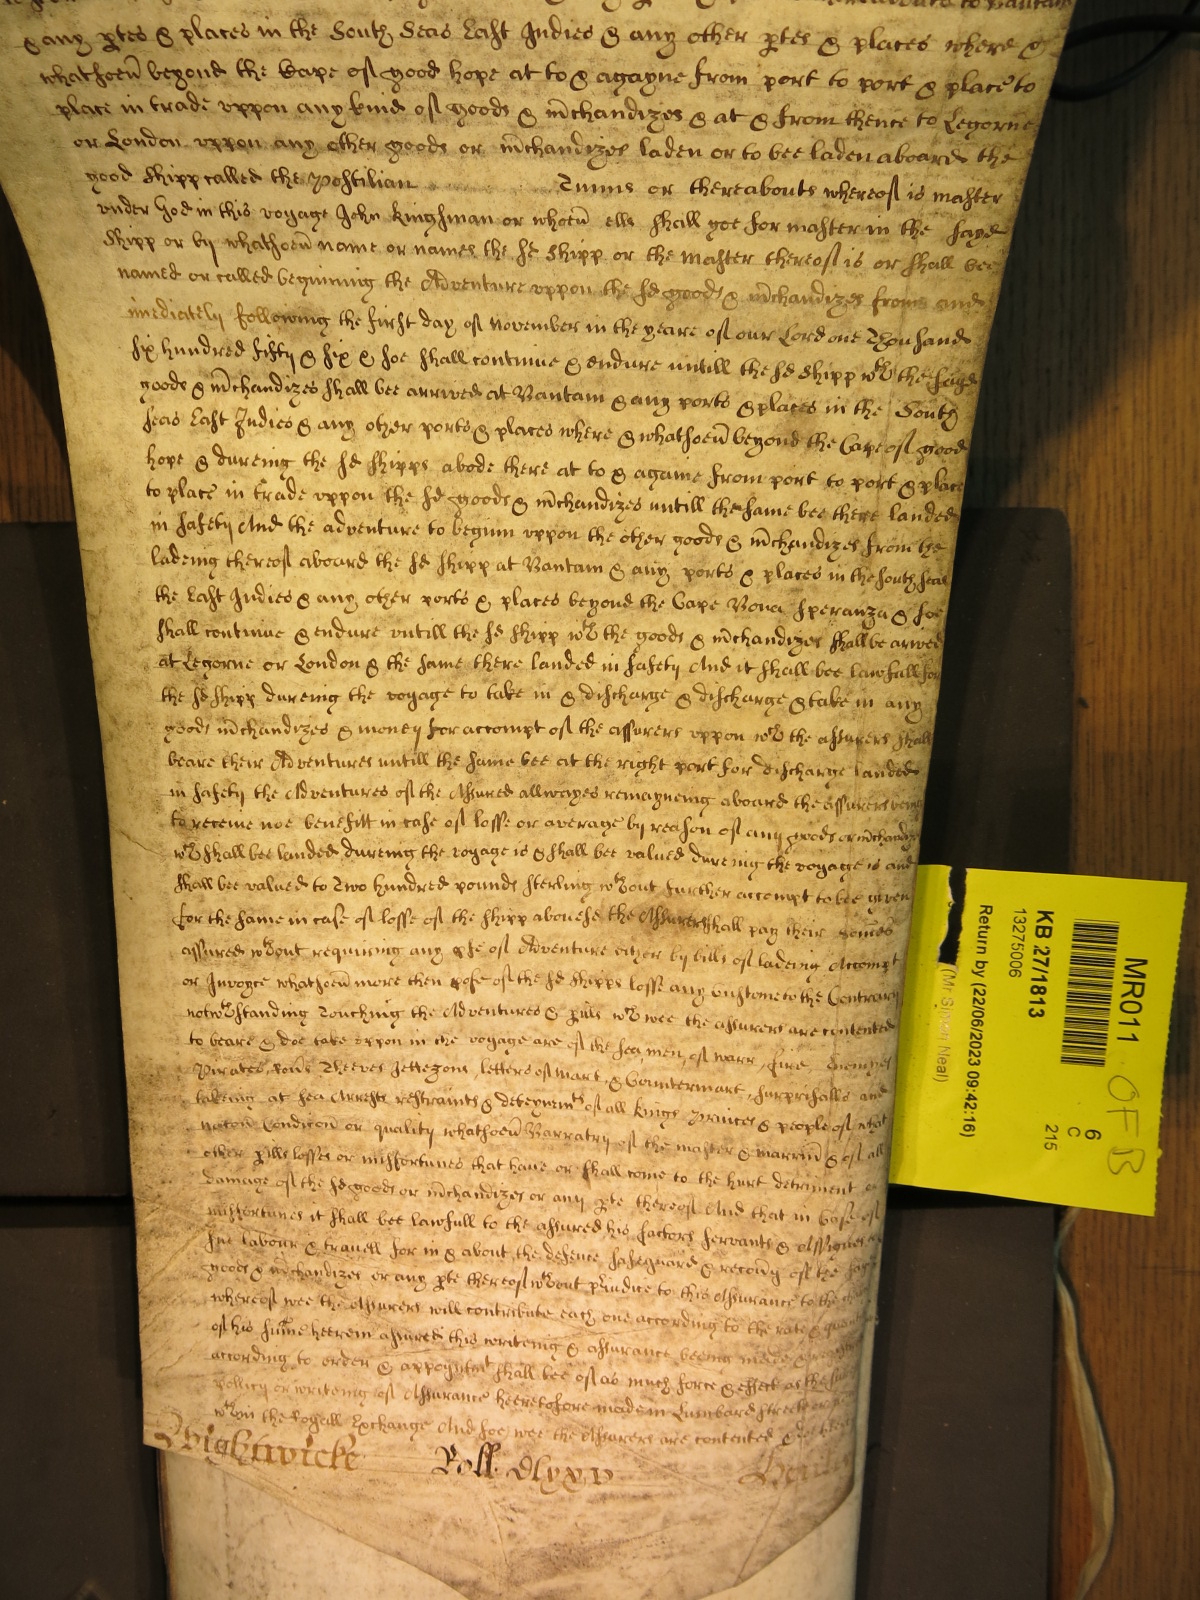 to Bantam
& any ptes & places in the South Seas East Indies & any other ptes & places where &
whatsoeu beyond the Cape of good hope at to & agayne from port to port & place to
place in trade vppon any kind of goods & mchandizes & at & from thence to Legorne
or London vppon any other goods or mchandizes laden or to bee laden aboard the
good Shipp called the Postilian Tunns or thereabouts whereof is master
vnder God in this voyage John Kingsman or whoeu ells shall goe for master in the sayd
Shipp or by whatsoeu name or names the sd Shipp or the master thereof is or shall bee
named or called beginning the Adventure vppon the sd goods & mchandizes from and
imediately following the first day of November in the yeare of our Lord one Thousand
six hundred fifty & six & soe shall continue & endure untill the sd Shipp wth the sayd
goods & mchandizes shall bee arrived at Bantam & any ports & places in the South
Seas East Indies & any other ports & places where & whatsoeu beyond the Cape of good
hope & dureing the sd shipps abode there at to & againe from port to port & place
to place in trade vppon the sd goods & mchandizes untill the same bee there landed
in safety And the adventure to beginn vppon the other goods & mchandizes from the
ladeing thereof aboard the sd Shipp at Bantam & any ports & places in the South Seas
the East Indies & any other ports & places beyond the Cape Bona Speranza & soe
shall continue & endure vntill the sd Shipp wth the goods & mchandizes shall be arived
at Legorne or London & the same there landed in safety And it shall bee lawfull for
the sd shipp dureing the voyage to take in & discharge & discharge & take in any
goods mchandizes & money for accompt of the assurers vppon wch the assurers shall
beare their Adventures untill the same bee at the right port for discharge landed
in safety the Adventures of the Assured allwayes remayneing aboard the assurers being
to receiue noe benefitt in case of losse or average by reason of any goods or mchandizes
wch shall bee landed dureing the voyage is & shall bee valued dureing the voyage is and
shall bee valued to Two hundred pounds sterling wthout further accompt to bee given
for the same in case of losse of the shipp abouesd the Assurers shall pay their
assured wthout requiring any pfe of Adventure either by bills of ladeing Accompt
or Invoyce whatsoeu more then pofe of the sd shipps losse any Custome to the Contrary
notwthstanding Touching the Adventures & pills wch wee the assurers are contented
to beare & doe take vppon in the voyage are of the sea, men of warr, fire, Enemyes
Pirates, Theeves Jettezons, letters of mart & Countermart, surprisalls and
takeing at sea Arrests restraints & deteynemts of all Kings Princes & people of what
nacon Condicon or quality whatsoeu Barratry of the master & marrin & of all
other pills losses or misfortunes that haue or shall come to the hurt detriment or
damage of the sd goods or mchandizes or any pte thereof And that in Case of
misfortunes it shall bee lawfull to the assured his factors servants & Assignes
sue labour & travell for in & about the defence safeguard & recou of the sayd
goods & mchandizes or any pte thereof wthout piudice to this Assurance to the
whereof wee the Assurers will contribute each one according to the rate &
of his sume heerein assured this writeing & assurance beeing made &
according to order & appoyntmt shall bee of as much force & effect as the
Pollicy or writeing of Assurance heeretofore made in Lumbard Street or
wthin the Royall Exchange And soe wee the Assurers are contented &
Brightwicke Roll Dlxxv
MR011
KB 27/1813
13275006
Return by (22/06/2023 09:42:16)
(Mr Simon Neal)
6
C
215
OFB